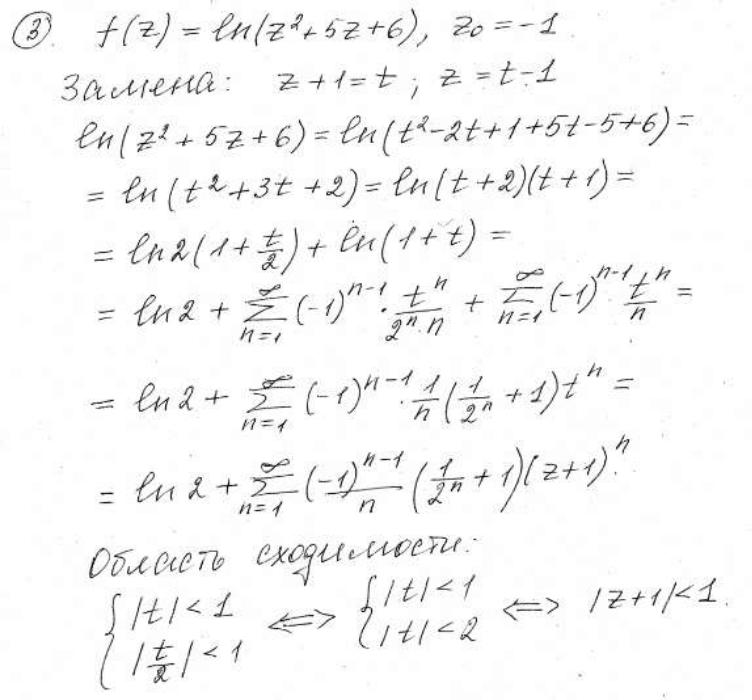 ③. f(z) = ln(z²+5z+6), z₀ = -1.
Замена: z+1=t; z=t-1
ln(z²+5z+6) = ln(t²-2t+1+5t-5+6) =
= ln(t²+3t+2) = ln(t+2)(t+1) =
= ln2(1+t/2) + ln(1+t) =
= ln2 + ∑_{n=1}^{∞} (-1)^{n-1} · t^n/(2^n·n) + ∑_{n=1}^{∞} (-1)^{n-1} t^n/n =
= ln2 + ∑_{n=1}^{∞} (-1)^{n-1} · 1/n (1/2^n + 1) t^n =
= ln2 + ∑_{n=1}^{∞} (-1)^{n-1}/n (1/2^n + 1)(z+1)^n.
Область сходимости:
{ |t|<1 ; |t/2|<1 ⟺ { |t|<1 ; |t|<2 ⟺ |z+1|<1.